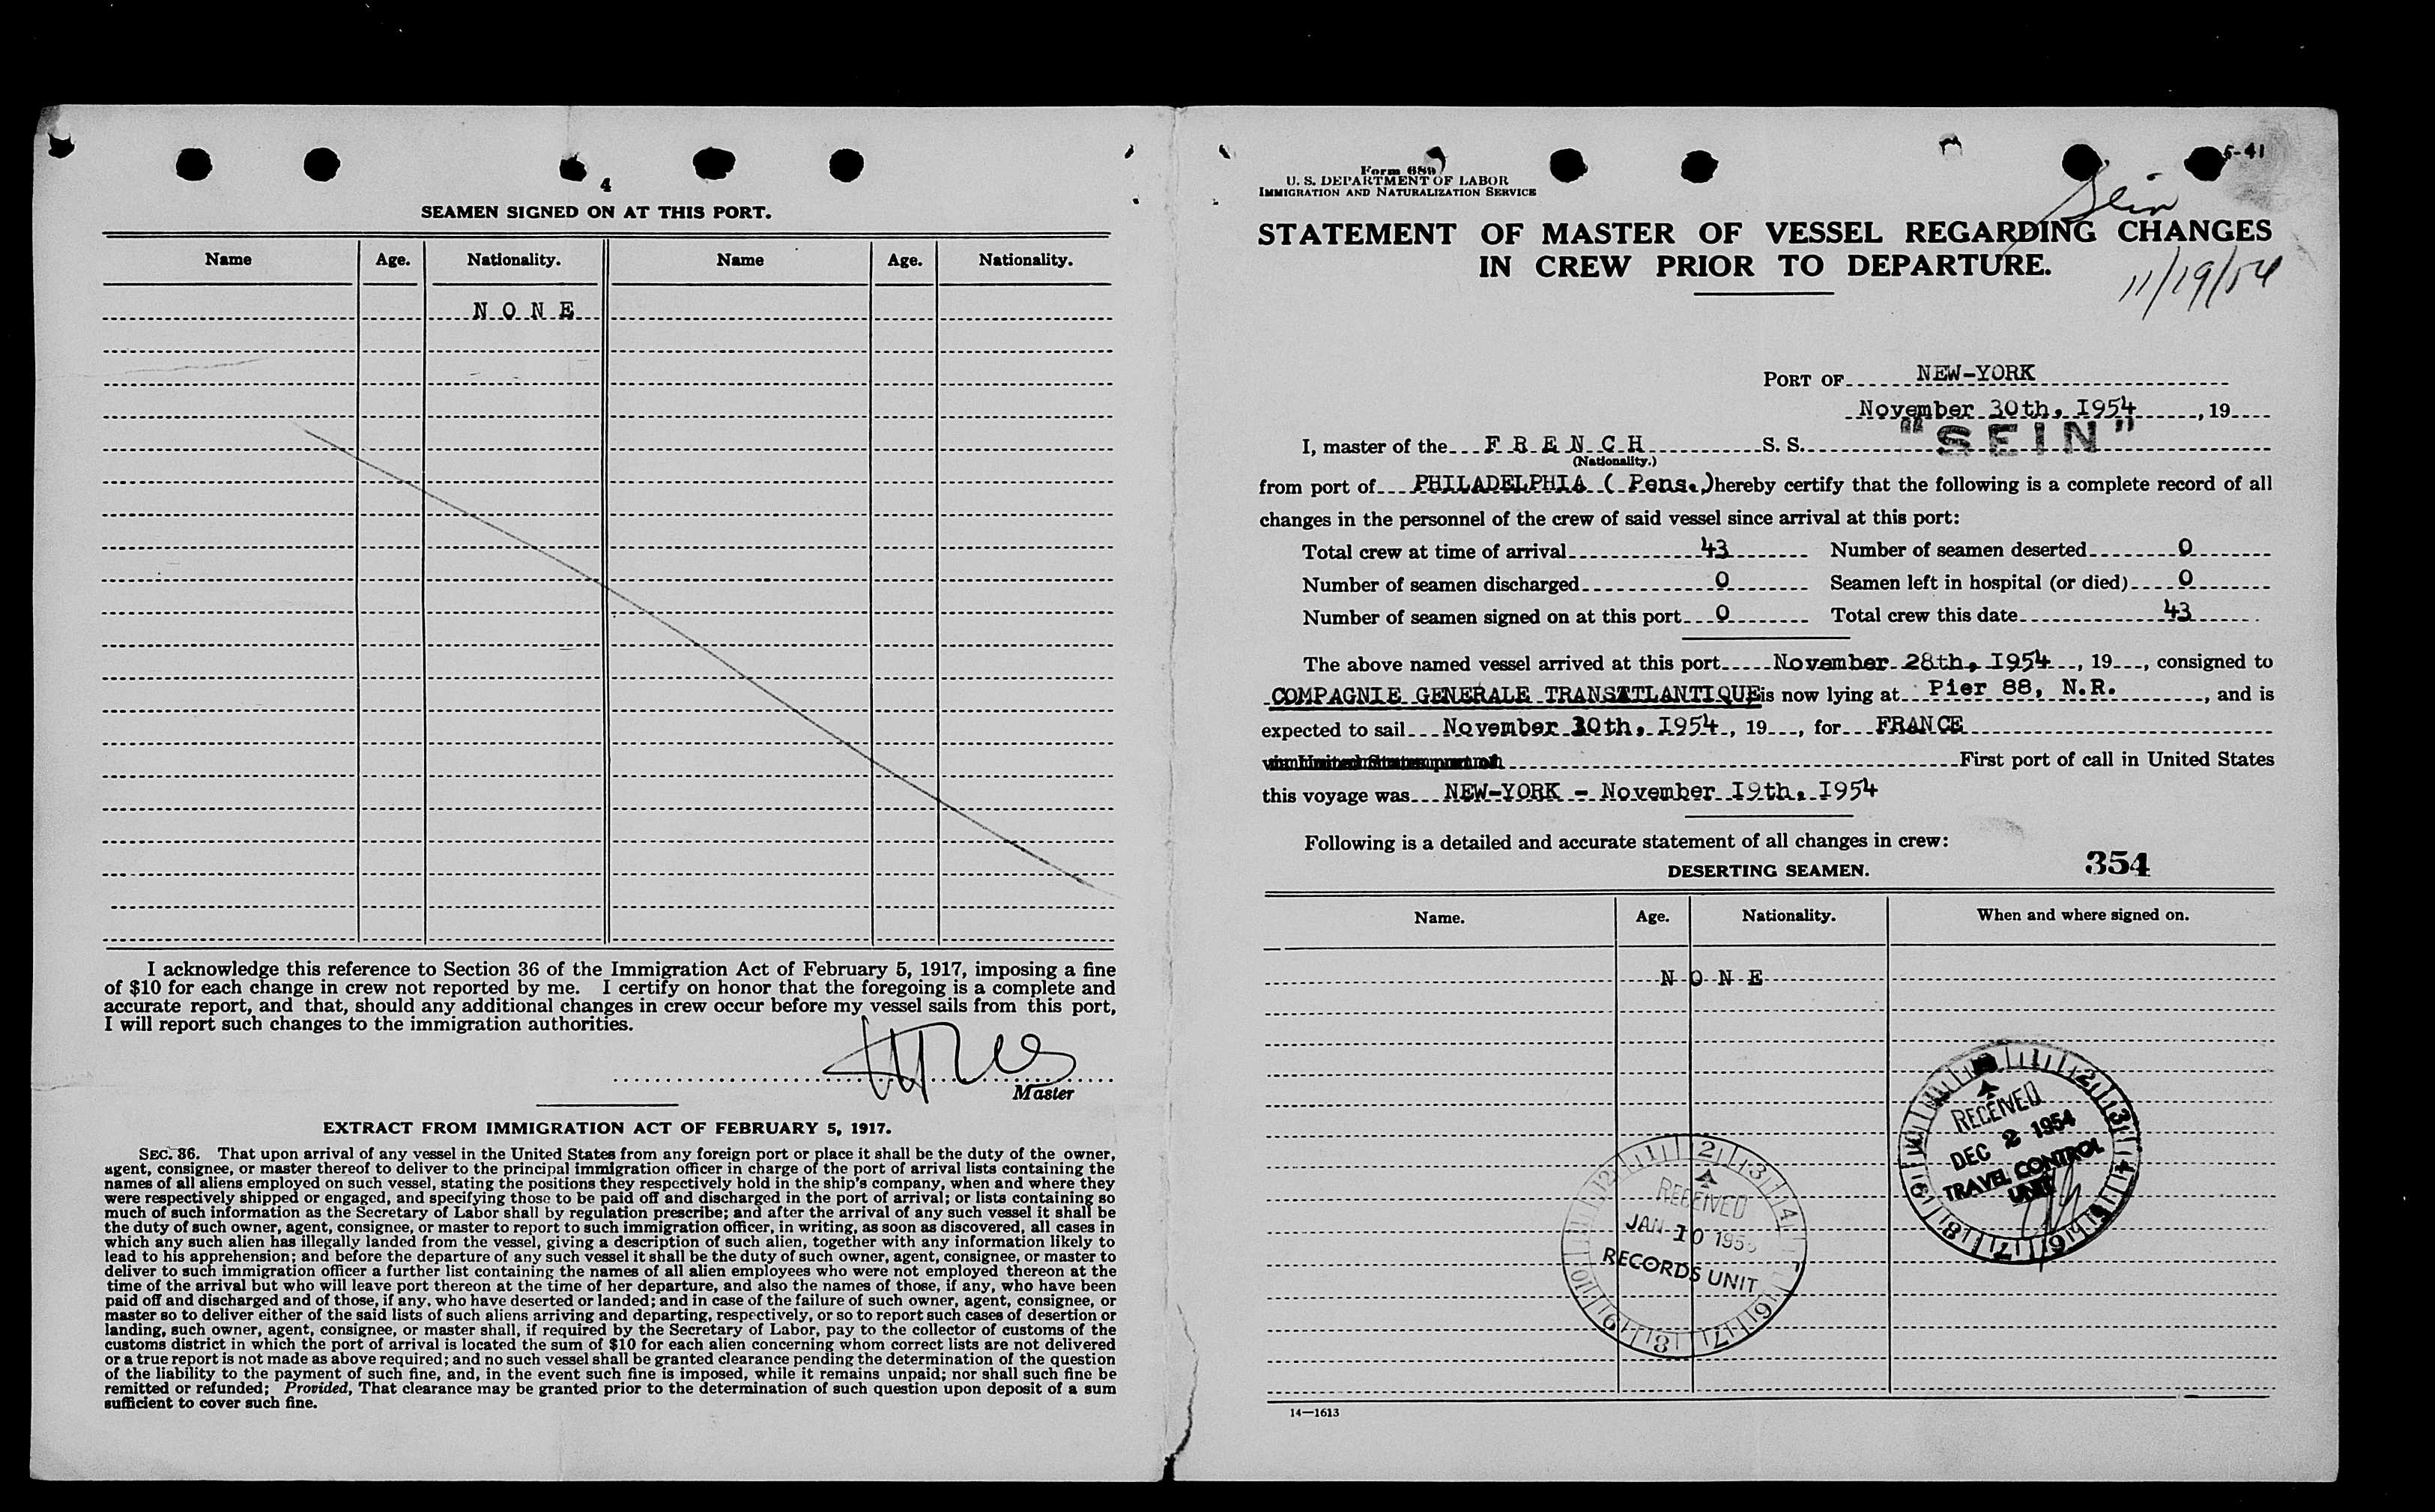 4
SEAMEN SIGNED ON AT THIS PORT.
Name Age. Nationality. Name Age. Nationality.
N O N E
I acknowledge this reference to Section 36 of the Immigration Act of February 5, 1917, imposing a fine
of $10 for each change in crew not reported by me. I certify on honor that the foregoing is a complete and
accurate report, and that, should any additional changes in crew occur before my vessel sails from this port,
I will report such changes to the immigration authorities.
Master
EXTRACT FROM IMMIGRATION ACT OF FEBRUARY 5, 1917.
SEC. 36. That upon arrival of any vessel in the United States from any foreign port or place it shall be the duty of the owner,
agent, consignee, or master thereof to deliver to the principal immigration officer in charge of the port of arrival lists containing the
names of all aliens employed on such vessel, stating the positions they respectively hold in the ship's company, when and where they
were respectively shipped or engaged, and specifying those to be paid off and discharged in the port of arrival; or lists containing so
much of such information as the Secretary of Labor shall by regulation prescribe; and after the arrival of any such vessel it shall be
the duty of such owner, agent, consignee, or master to report to such immigration officer, in writing, as soon as discovered, all cases in
which any such alien has illegally landed from the vessel, giving a description of such alien, together with any information likely to
lead to his apprehension; and before the departure of any such vessel it shall be the duty of such owner, agent, consignee, or master to
deliver to such immigration officer a further list containing the names of all alien employees who were not employed thereon at the
time of the arrival but who will leave port thereon at the time of her departure, and also the names of those, if any, who have been
paid off and discharged and of those, if any, who have deserted or landed; and in case of the failure of such owner, agent, consignee, or
master so to deliver either of the said lists of such aliens arriving and departing, respectively, or so to report such cases of desertion or
landing, such owner, agent, consignee, or master shall, if required by the Secretary of Labor, pay to the collector of customs of the
customs district in which the port of arrival is located the sum of $10 for each alien concerning whom correct lists are not delivered
or a true report is not made as above required; and no such vessel shall be granted clearance pending the determination of the question
of the liability to the payment of such fine, and, in the event such fine is imposed, while it remains unpaid; nor shall such fine be
remitted or refunded; Provided, That clearance may be granted prior to the determination of such question upon deposit of a sum
sufficient to cover such fine.
Form 689
U. S. DEPARTMENT OF LABOR
IMMIGRATION AND NATURALIZATION SERVICE
5-41
Sein
STATEMENT OF MASTER OF VESSEL REGARDING CHANGES
IN CREW PRIOR TO DEPARTURE.
11/19/54
PORT OF NEW-YORK
November 30th, I954, 19
I, master of the F R E N C H S. S. "SEIN"
(Nationality.)
from port of PHILADELPHIA ( Pens.) hereby certify that the following is a complete record of all
changes in the personnel of the crew of said vessel since arrival at this port:
Total crew at time of arrival 43 Number of seamen deserted 0
Number of seamen discharged 0 Seamen left in hospital (or died) 0
Number of seamen signed on at this port 0 Total crew this date 43
The above named vessel arrived at this port November 28th, I954, 19, consigned to
COMPAGNIE GENERALE TRANSTTLANTIQUE is now lying at Pier 88, N.R., and is
expected to sail November 30th, I954, 19, for FRANCE
via United States port of First port of call in United States
this voyage was NEW-YORK - November I9th, I954
Following is a detailed and accurate statement of all changes in crew:
354
DESERTING SEAMEN.
Name. Age. Nationality. When and where signed on.
N O N E
RECEIVED
DEC 2 1954
TRAVEL CONTROL
UNIT
RECEIVED
JAN 10 195
RECORDS UNIT
14—1613